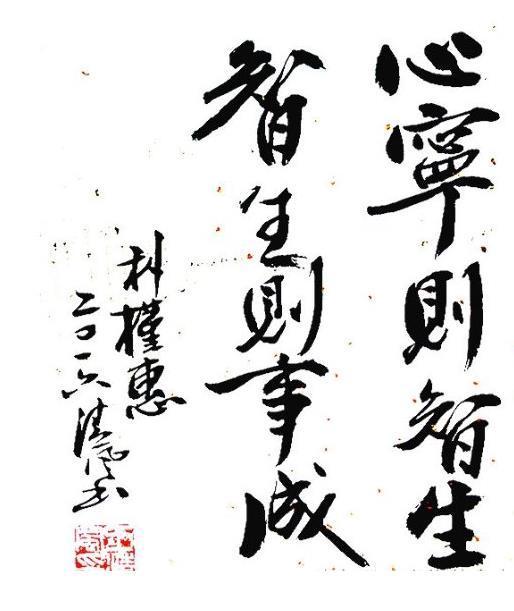 心寧則智生
智生則事成
惠
二〇一六清風書